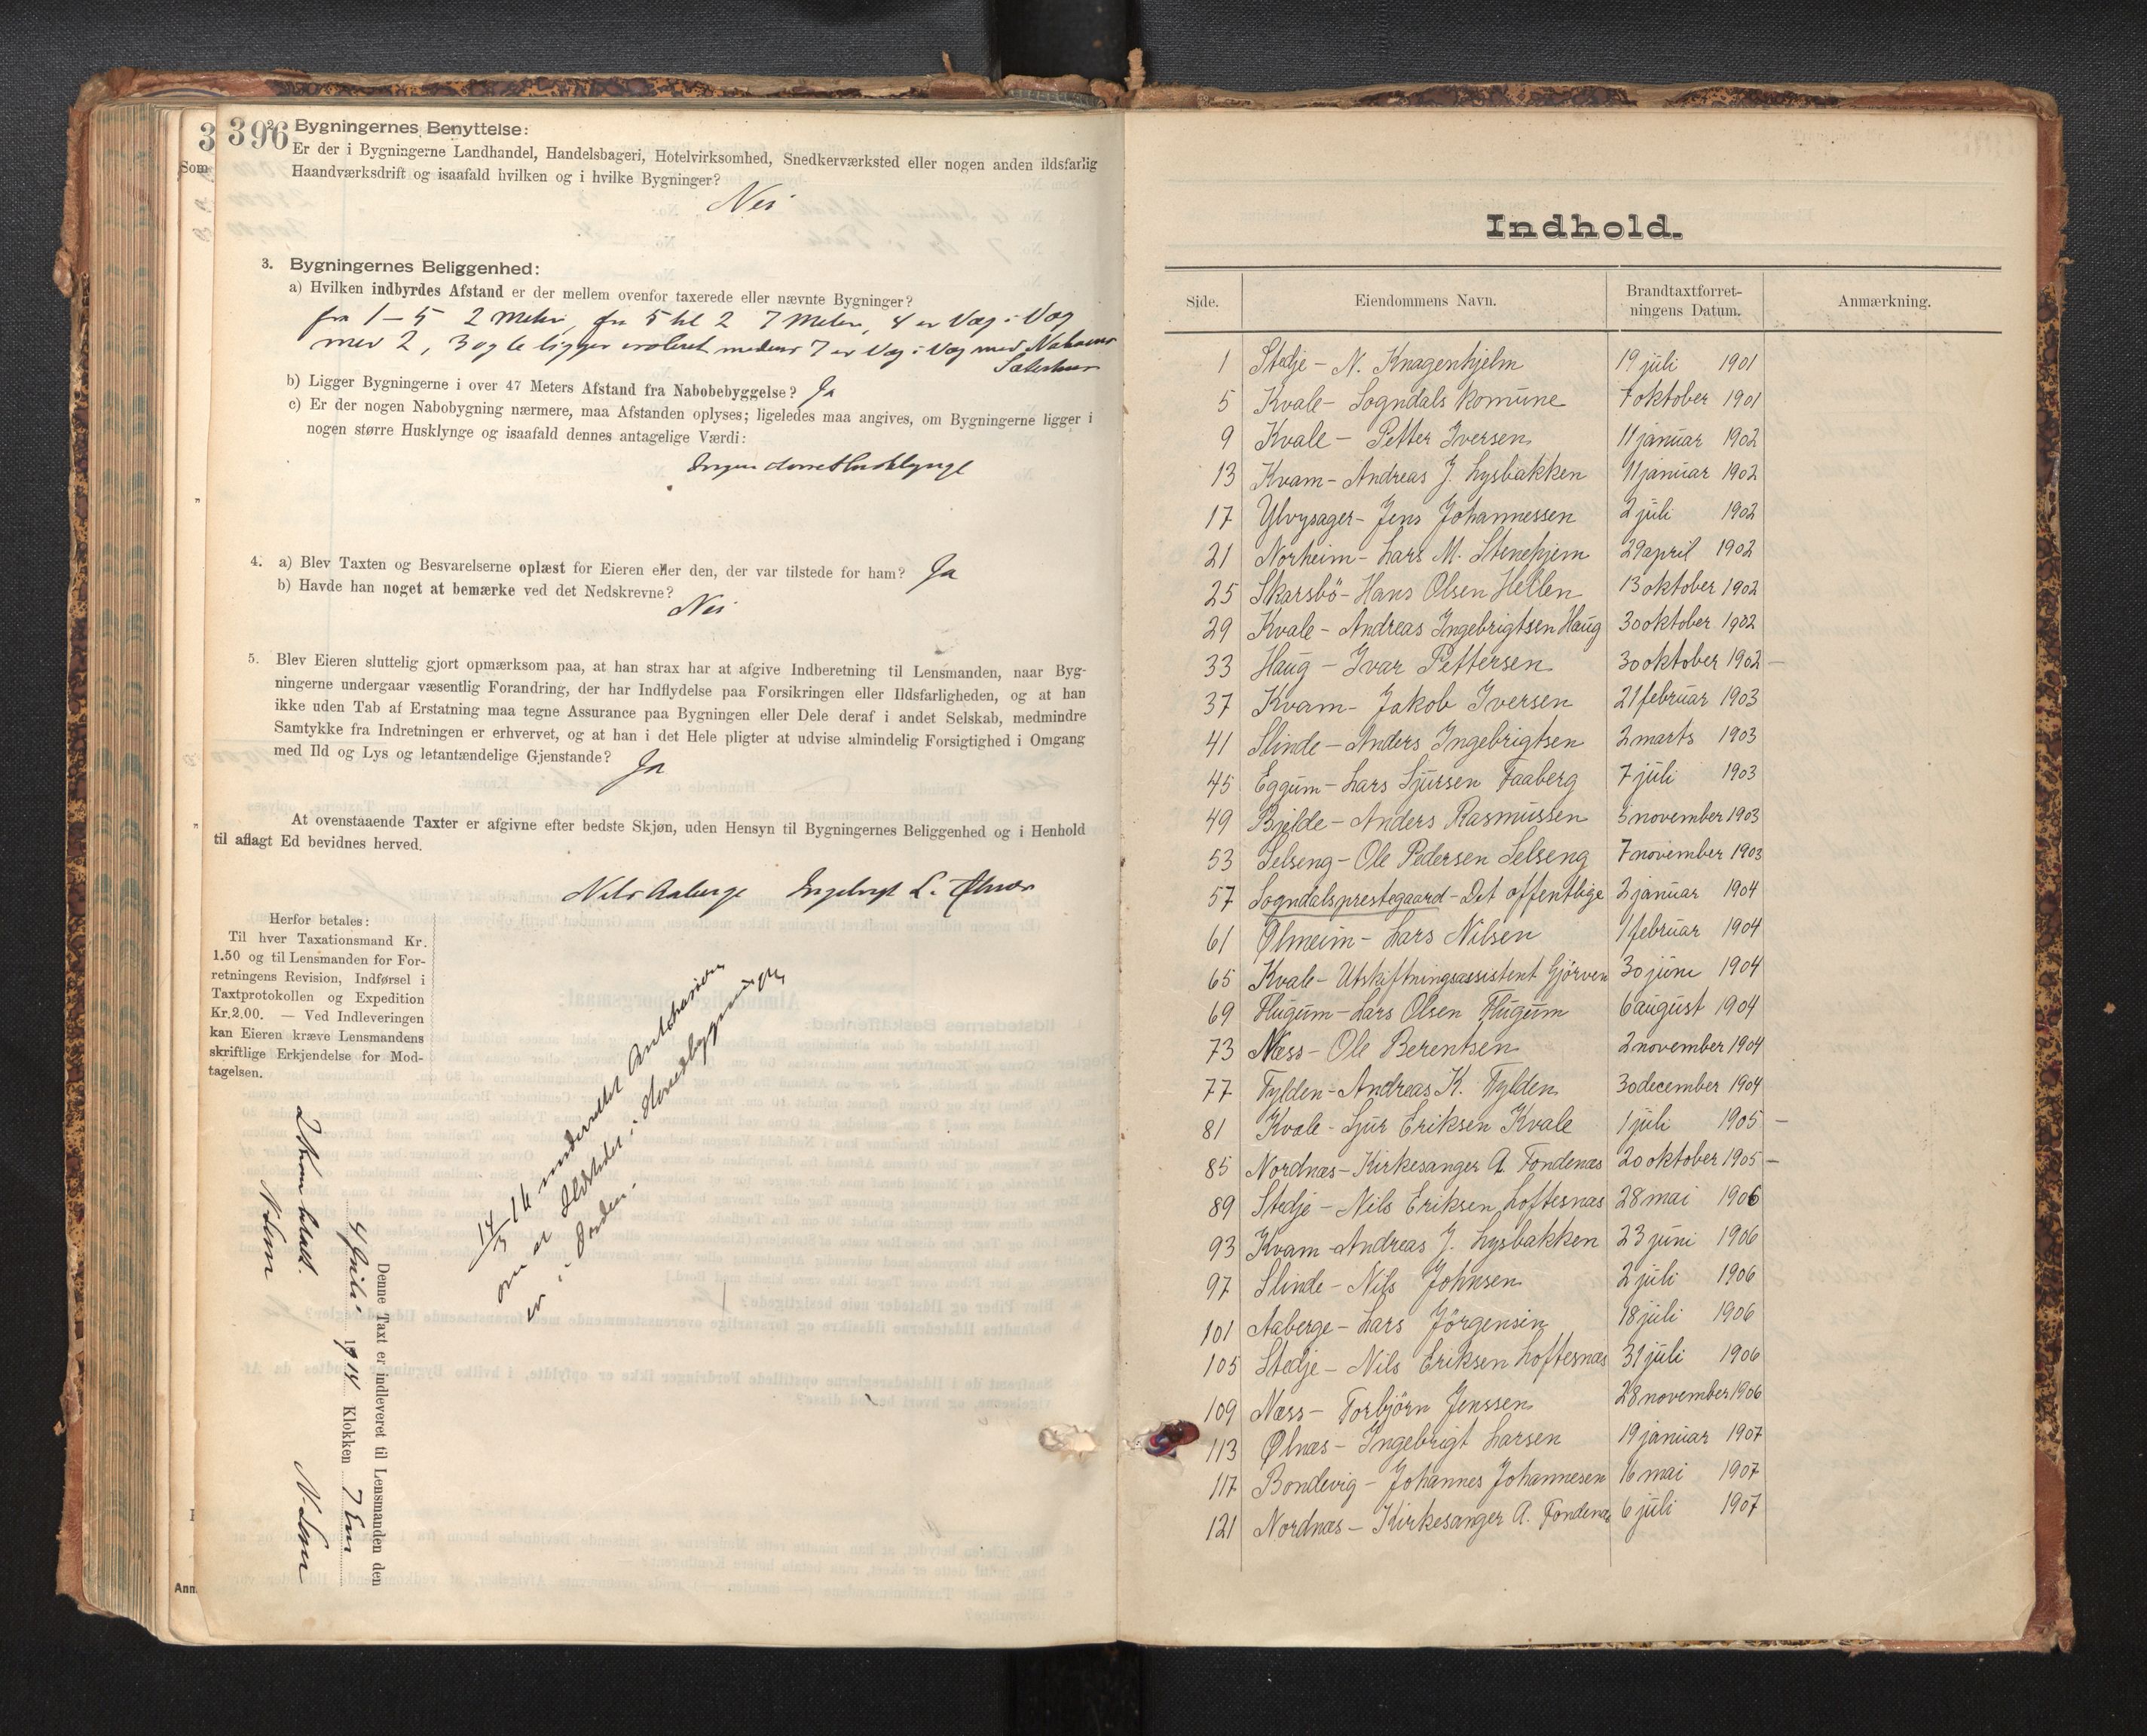 396
3
Som
2. Bygningernes Benyttelse:
Er der i Bygningerne Landhandel, Handelsbageri, Hotelvirksomhed, Snedkerværksted eller nogen anden ildsfarlig
Haandværksdrift og isaafald hvilken og i hvilke Bygninger?
Nei
3. Bygningernes Beliggenhed:
a) Hvilken indbyrdes Afstand er der mellem ovenfor taxerede eller nævnte Bygninger?
fra 1–5 2 Meter, fra 5 til 2 7 Meter, 4 er Væg i Væg
med 2, 3 og 6 ligger isoleret medens 7 er Væg i Væg med Naboens
b) Ligger Bygningerne i over 47 Meters Afstand fra Nabobebyggelse? Ja
c) Er der nogen Nabobygning nærmere, maa Afstanden oplyses; ligeledes maa angives, om Bygningerne ligger i
nogen større Husklynge og isaafald dennes antagelige Værdi:
Ingen større Husklynge
4. a) Blev Taxten og Besvarelserne oplæst for Eieren eller den, der var tilstede for ham? Ja
b) Havde han noget at bemærke ved det Nedskrevne?
Nei
5. Blev Eieren sluttelig gjort opmærksom paa, at han strax har at afgive Indberetning til Lensmanden, naar Byg-
ningerne undergaar væsentlig Forandring, der har Indflydelse paa Forsikringen eller Ildsfarligheden, og at han
ikke uden Tab af Erstatning maa tegne Assurance paa Bygningen eller Dele deraf i andet Selskab, medmindre
Samtykke fra Indretningen er erhvervet, og at han i det Hele pligter at udvise almindelig Forsigtighed i Omgang
med Ild og Lys og letantændelige Gjenstande? Ja
At ovenstaaende Taxter er afgivne efter bedste Skjøn, uden Hensyn til Bygningernes Beliggenhed og i Henhold
til aflagt Ed bevidnes herved.
Nils Aaberge Ingebrigt L. Ølnæs
Herfor betales:
Til hver Taxationsmand Kr.
1.50 og til Lensmanden for For-
retningens Revision, Indførsel i
Taxtprotokollen og Expedition
Kr. 2.00. — Ved Indleveringen
kan Eieren kræve Lensmandens
skriftlige Erkjendelse for Mod-
tagelsen.
14/3 16 underrettet Anvisningen
om at Ildsteder i Hovedbygningen
er i Orden.
Denne Taxt er indleveret til Lensmanden den
4 juli 1914 Klokken 7 Em
2 Kroner betalt.
Ann
Indhold.
Side. Eiendommens Navn. Brandtaxtforret- Anmærkning.
ningens Datum.
1 Stedje – N. Knagenhjelm 19 juli 1901
5 Kvale – Sogndals komune 7 oktober 1901
9 Kvale – Petter Iversen 11 januar 1902
13 Kvam – Andreas J. Lysbakken 11 januar 1902
17 Ylvysager – Jens Johannessen 2 juli 1902
21 Norheim – Lars M. Stenehjem 29 april 1902
25 Skarsbö – Hans Olsen Hellen 13 oktober 1902
29 Kvale – Andreas Ingebrigtsen Haug 30 oktober 1902
33 Haug – Ivar Pettersen 30 oktober 1902 –
37 Kvam – Jakob Iversen 21 februar 1903
41 Slinde – Anders Ingebrigtsen 2 marts 1903
45 Eggum – Lars Sjursen Faaberg 7 juli 1903
49 Bjelde – Anders Rasmussen 5 november 1903
53 Selseng – Ole Pedersen Selseng 7 november 1903
57 Sogndalsprestegaard – Det offentlige 2 januar 1904
61 Ølmeim – Lars Nilsen 1 februar 1904
65 Kvale – Utskiftningsassistent Gjörven 30 juni 1904
69 Flugum – Lars Olsen Flugum 6 august 1904
73 Næss – Ole Berentsen 2 november 1904
77 Fylden – Andreas K. Fylden 30 december 1904
81 Kvale – Sjur Eriksen Kvale 1 juli 1905 –
85 Nordnæs – Kirkesanger A. Fondenæs 20 oktober 1905 –
89 Stedje – Nils Eriksen Loftesnæs 28 mai 1906
93 Kvam – Andreas J. Lysbakken 23 juni 1906
97 Slinde – Nils Johnsen 2 juli 1906
101 Aaberge – Lars Jörgensen 18 juli 1906
105 Stedje – Nils Eriksen Loftesnæs 31 juli 1906
109 Næss – Torbjörn Jenssen 28 november 1906
113 Ølnæs – Ingebrigt Larsen 19 januar 1907
117 Bondevig – Johannes Johannesen 16 mai 1907
121 Nordnæs – Kirkesanger A. Fondenæs 6 juli 1907